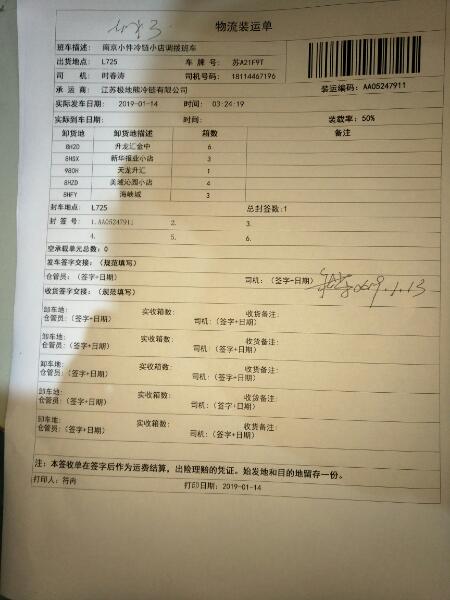 物流装运单
班车描述: 南京小件冷链小店调拨班车
出货地点: L725 车牌号: 苏A21F9T
司 机: 时春涛 司机号码: 18114467196
承运商: 江苏极地熊冷链有限公司 装运编码: AA05247911
实际发车日期: 2019-01-14 时间: 03:24:19
实际到车日期: 时间: 装载率: 50%
卸货地 卸货地描述 箱数 备注
8H2D 升龙汇金中 6
8HSX 新华报业小店 3
980H 天龙升汇 1
8HZD 美域沁园小店 4
8HFY 海峡城 3
封车地点: L725 总封签数:1
封签号: 1.AA05247911 2. 3.
4. 5. 6.
空承载单元总数: 0
发车签字交接: (规范填写)
仓管员: (签字+日期) 司机: (签字+日期) 2019.1.13
收货签字交接: (规范填写)
卸车地: 实收箱数: 收货备注:
仓管员: (签字+日期) 司机: (签字+日期)
卸车地: 实收箱数: 收货备注:
仓管员: (签字+日期) 司机: (签字+日期)
卸车地: 实收箱数: 收货备注:
仓管员: (签字+日期) 司机: (签字+日期)
卸车地: 实收箱数: 收货备注:
仓管员: (签字+日期) 司机: (签字+日期)
卸车地: 实收箱数: 收货备注:
仓管员: (签字+日期) 司机: (签字+日期)
注: 本签收单在签字后作为运费结算, 出险理赔的凭证。始发地和目的地留存一份。
打印人: 符冉 打印日期: 2019-01-14